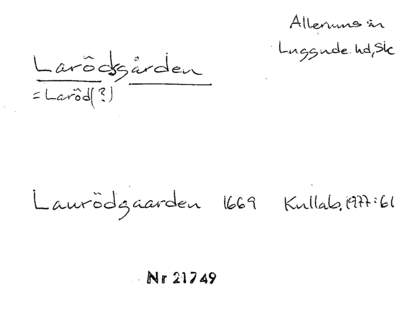 Allerums sn
Luggude hd, Sk
Larödsgården
= Laröd(?)
Laurödgaarden 1669 Kullab. 1977:61
Nr 21749